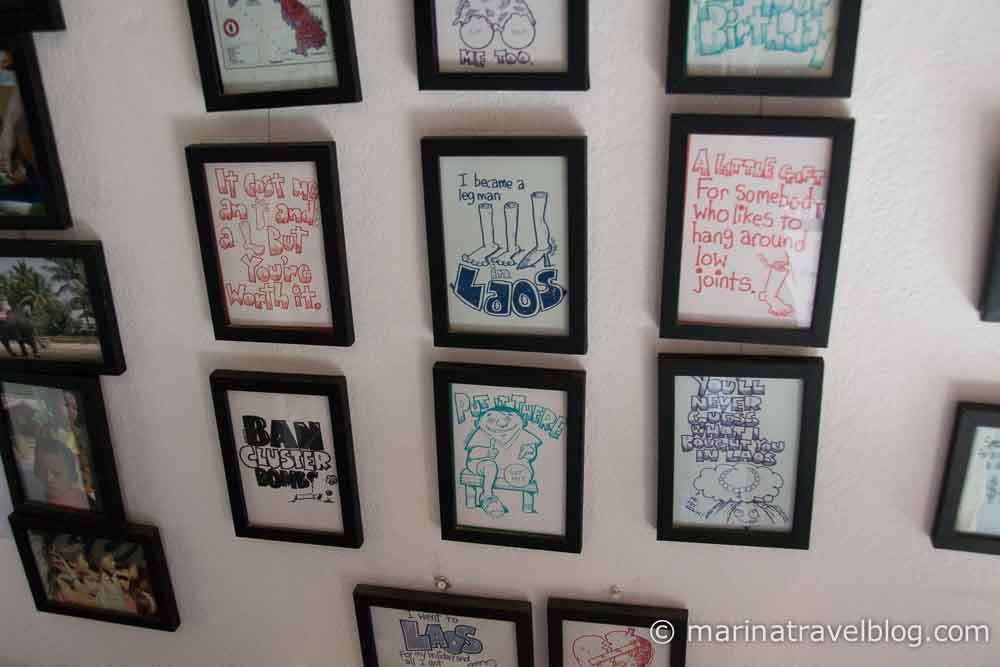 ME TOO.
Birthday
It cost me
an and
a L But
You're
Worth it.
I became a
leg man
in
LAOS
A LITTLE GIFT
For somebody
who likes to
hang around
low
joints.
BAN
CLUSTER
BOMBS
PUT IT THERE
YOU'LL
NEVER
GUESS
WHAT I
BOUGHT YOU
IN LAOS
I WENT TO
LAOS
For my holiday and
all I got
© marinatravelblog.com